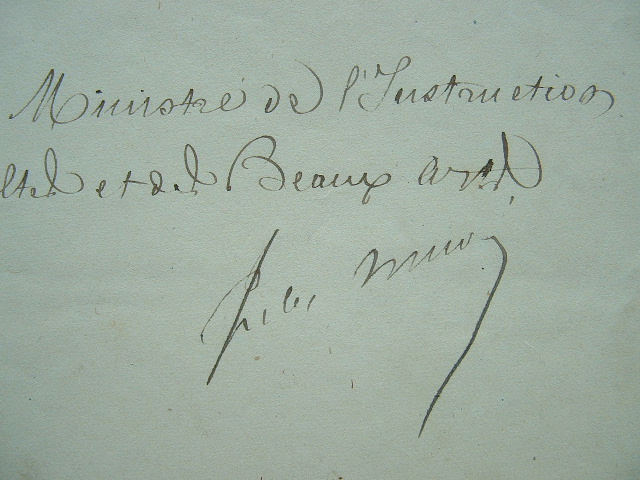 Ministre de l'Instruction
ltes et des Beaux arts.
Jules Simon